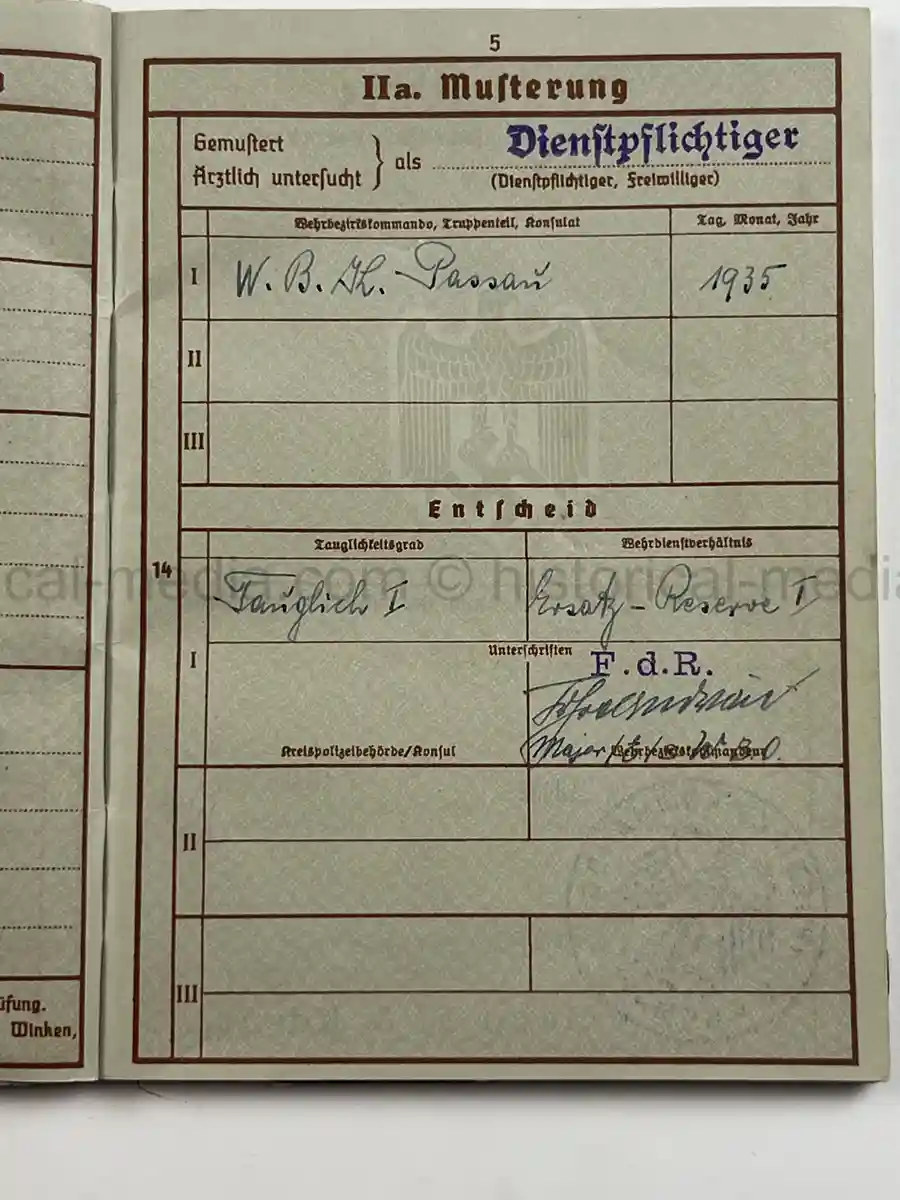 5
IIa. Musterung
Gemustert
Ärztlich untersucht } als Dienstpflichtiger
(Dienstpflichtiger, Freiwilliger)
Wehrbezirkskommando, Truppenteil, Konsulat Tag, Monat, Jahr
I W. B. K. - Passau 1935
II
III
Entscheid
Tauglichkeitsgrad Wehrdienstverhältnis
14
cal-media.com © historical-media
Tauglich I Ersatz-Reserve I
I
Unterschriften
F.d.R.
Kreispolizeibehörde/Konsul Major Wehrbezirkskommandeur
II
III
üfung.
Winken,